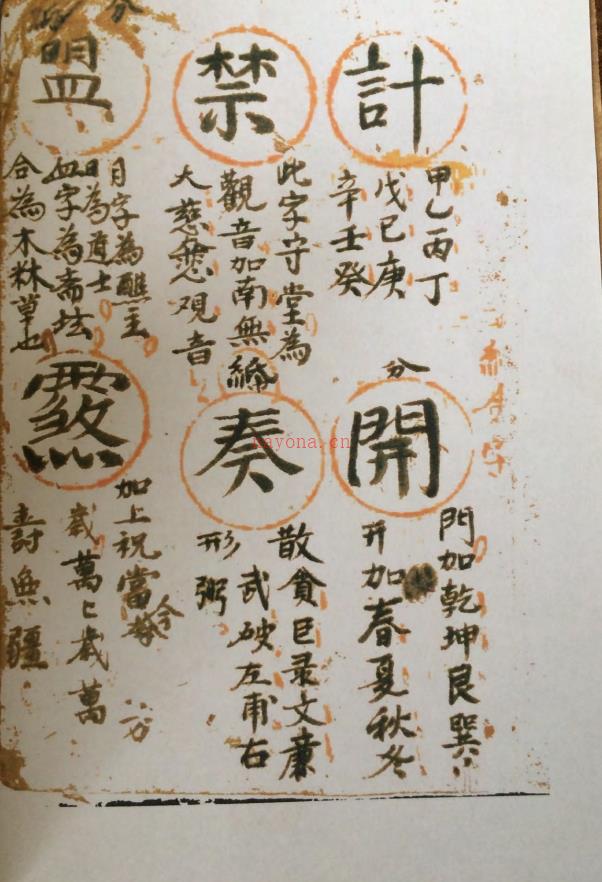 計
甲乙丙丁
戊己庚
辛壬癸
禁
此字守堂為
觀音加南無
大慈悲观音
盟
月字為醮主
日為道士
血字為斋坛
合為木林草也
分
開
門加乾坤艮巽
开加春夏秋冬
奏
散貪巨录文廉
武破左甫右
形弼
加上祝當今
歲萬歲萬
壽無疆
nayona.cn